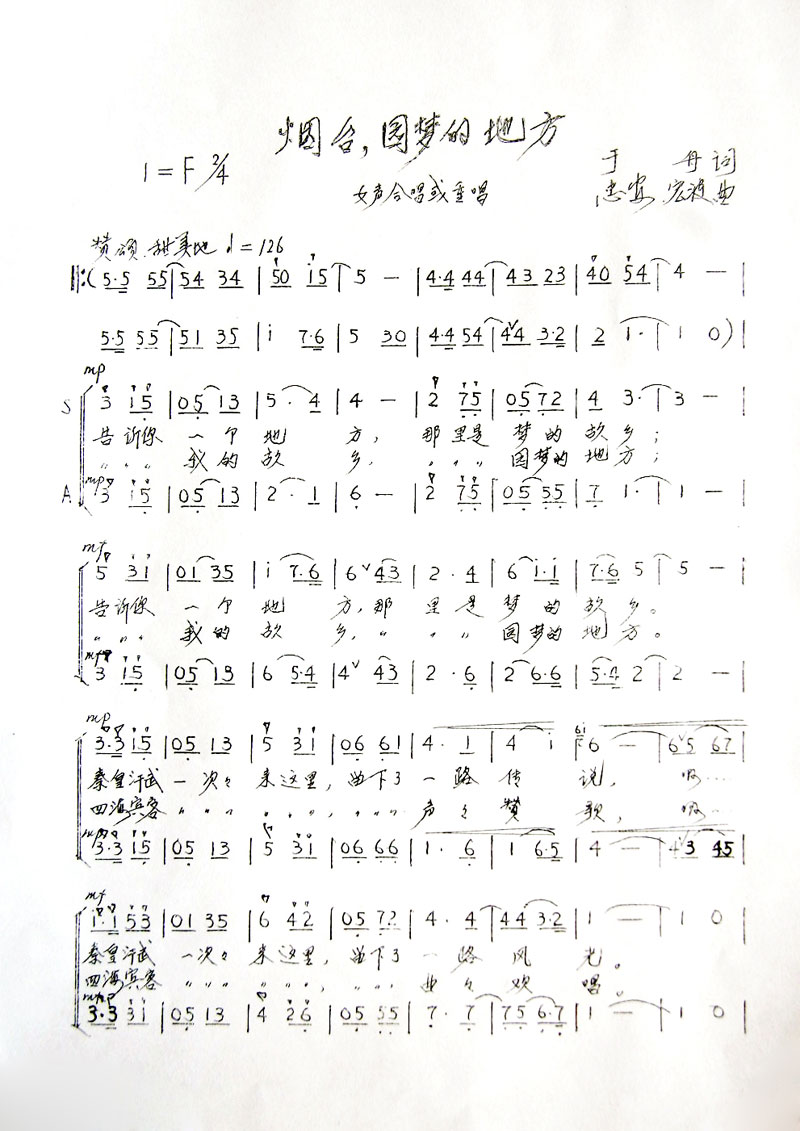 烟台,圆梦的地方
1=F 2/4
于 丹 词
女声合唱或重唱
忠安 宏波 曲
赞颂、甜美地 ♩=126
‖:( 5·5 55 | 54 34 | 50 i5 | 5 — | 4·4 44 | 43 23 | 40 54 | 4 — |
5·5 55 | 51 35 | i 7·6 | 5 30 | 4·4 54 | 44 3·2 | 2 1· | 1 0 )
mp
S 3 15 | 05 13 | 5· 4 | 4 — | 2 75 | 05 72 | 4 3· | 3 — |
告诉你 一个地 方, 那里是 梦的故乡;
〃〃〃 我的故 乡, 〃〃〃 圆梦的地方;
mp
A 3 15 | 05 13 | 2· 1 | 6 — | 2 75 | 05 55 | 7 1· | 1 — |
mf
5 31 | 01 35 | i 7·6 | 6 43 | 2· 4 | 6 i·i | 7·6 5 | 5 — |
告诉你 一个地 方,那 里是梦的故乡。
〃〃〃 我的故 乡,〃 〃〃圆梦的地方。
mf
3 15 | 05 13 | 6 5·4 | 4 43 | 2· 6 | 2 6·6 | 5·4 2 | 2 — |
mp
3·3 15 | 05 13 | 5 31 | 06 61 | 4· 1 | 4 i | 6 — | 65 67 |
秦皇汉武 一次々 来这里, 曲下了 一路传 说, 啊……
四海宾客 〃〃〃 〃〃〃, 〃〃〃 声々赞 歌, 啊……
3·3 15 | 05 13 | 5 31 | 06 66 | 1· 6 | 1 6·5 | 4 — | 43 45 |
mf
1·1 53 | 01 35 | 6 42 | 05 72 | 4· 4 | 44 3·2 | 1 — | 1 0 |
秦皇汉武 一次々 来这里, 曲下了 一路风 光。
四海宾客 〃〃〃 〃〃〃, 〃〃〃 欢 唱。
mp
3·3 31 | 05 13 | 4 26 | 05 55 | 7· 7 | 75 6·7 | 1 — | 1 0 |